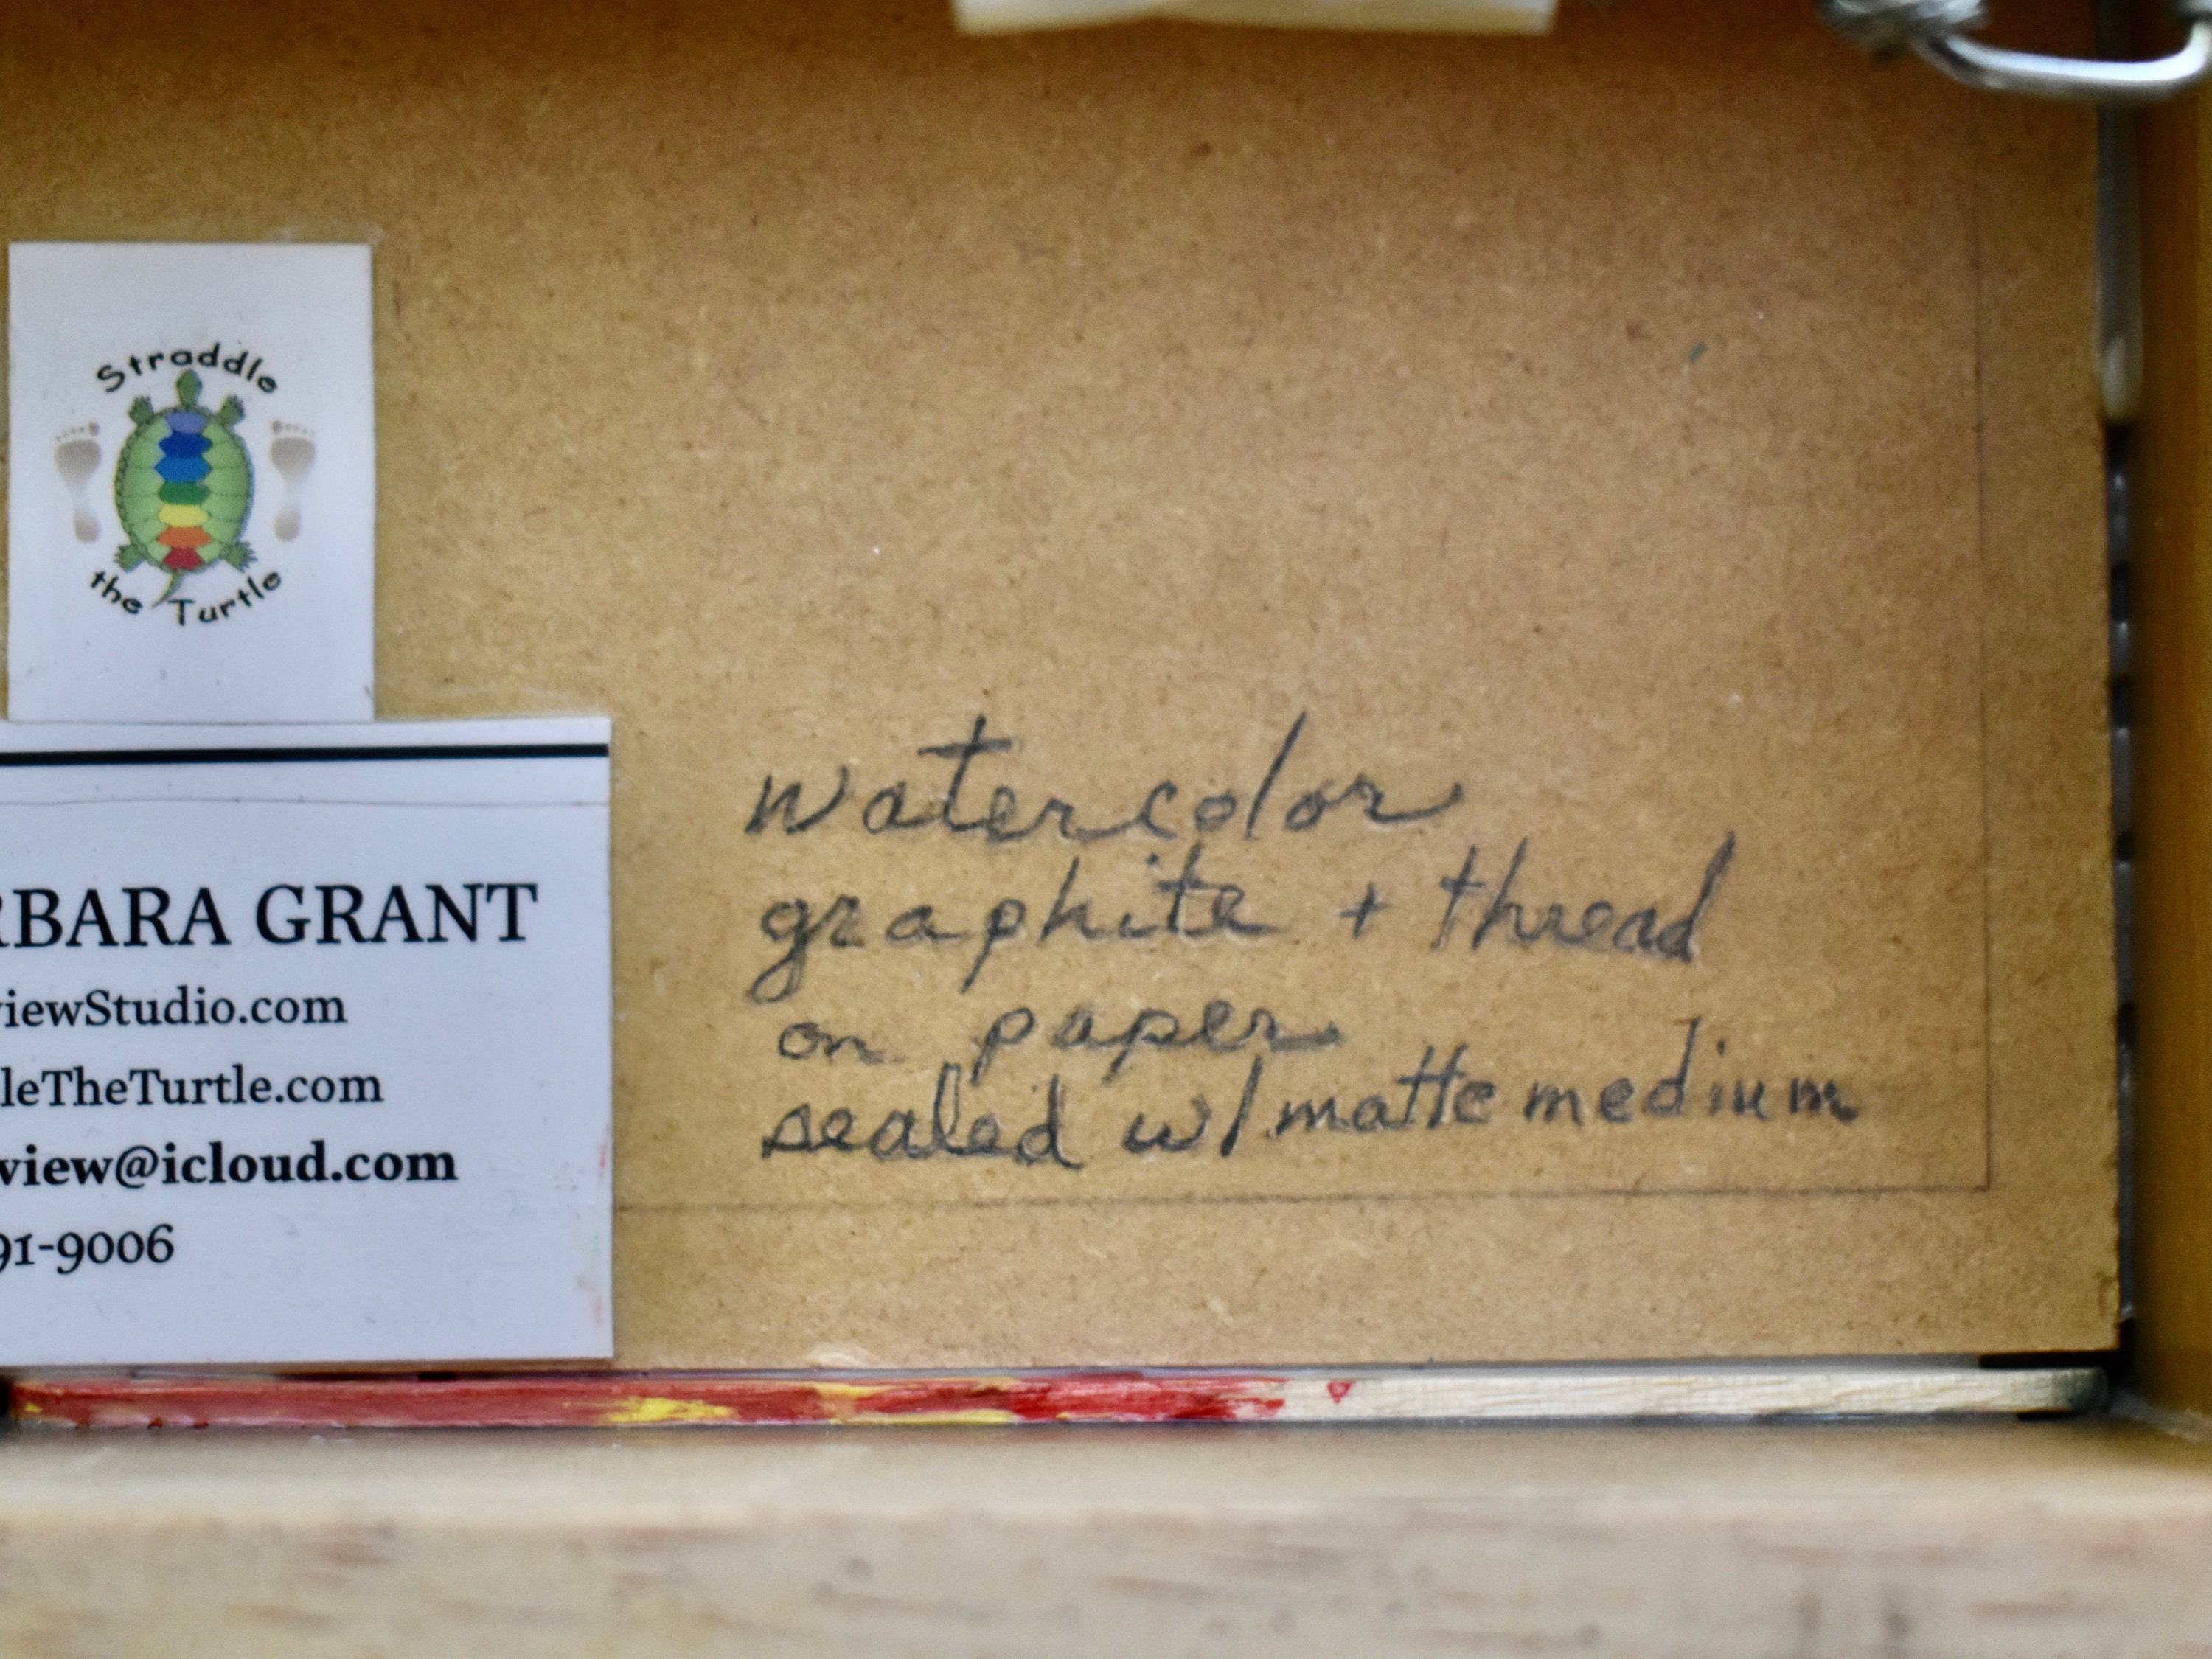 Straddle
the Turtle
RBARA GRANT
viewStudio.com
leTheTurtle.com
view@icloud.com
91-9006
watercolor
graphite + thread
on paper
sealed w/ matte medium